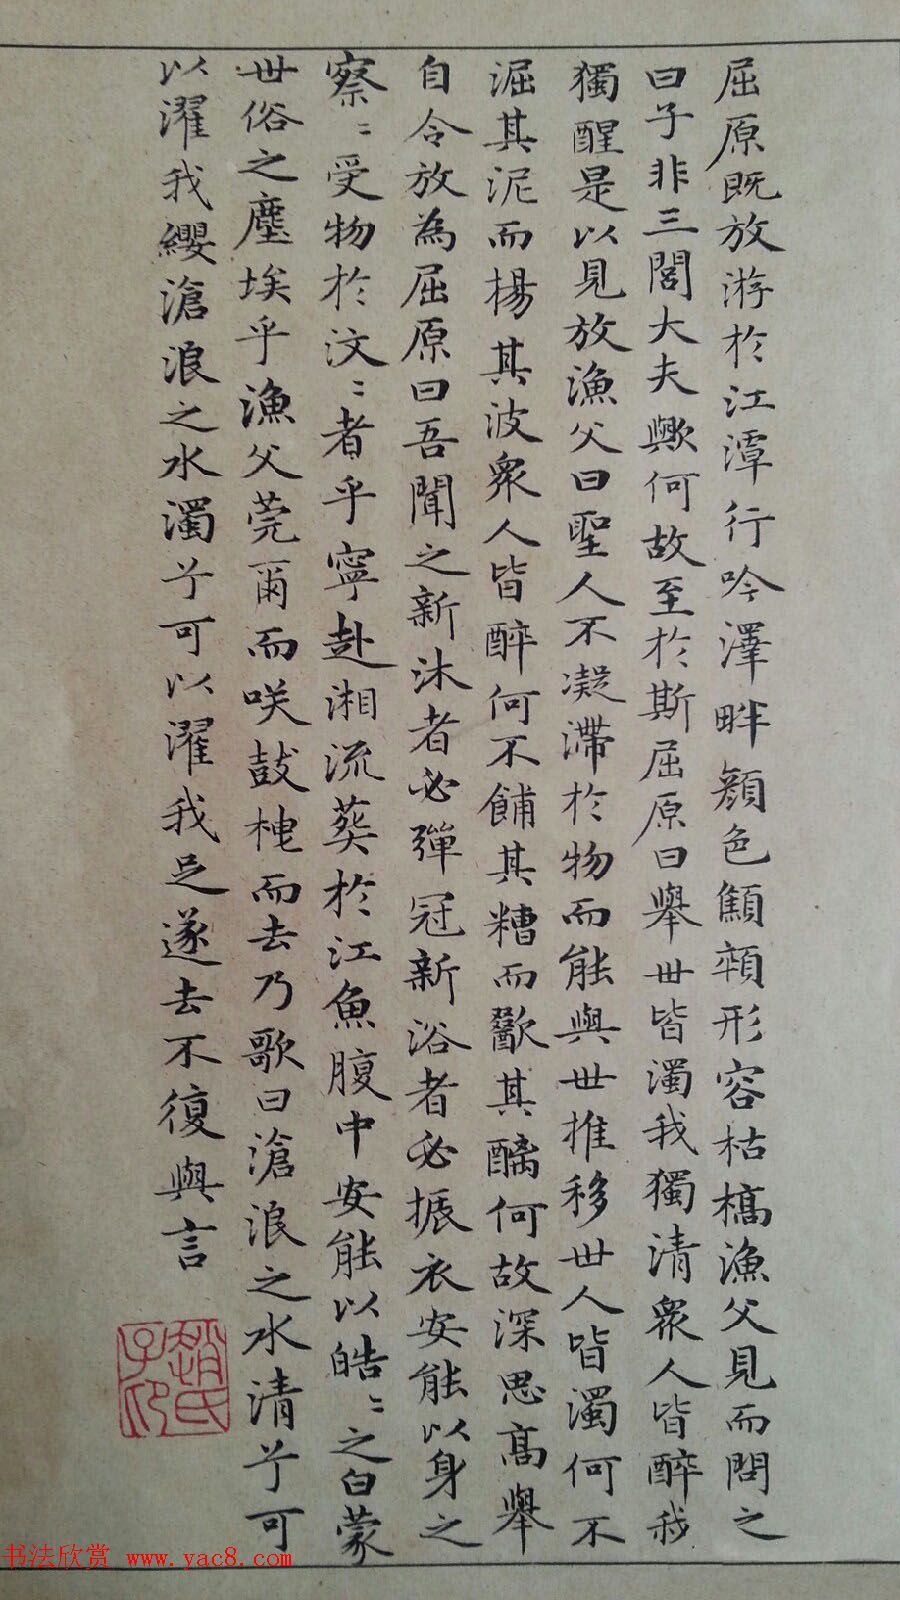 屈原既放游於江潭行吟澤畔顏色顦顇形容枯槁漁父見而問之
曰子非三閭大夫歟何故至於斯屈原曰舉世皆濁我獨清衆人皆醉我
獨醒是以見放漁父曰聖人不凝滯於物而能與世推移世人皆濁何不
淈其泥而楊其波衆人皆醉何不餔其糟而歠其醨何故深思高舉
自令放為屈原曰吾聞之新沐者必彈冠新浴者必振衣安能以身之
察〻受物於汶〻者乎寧赴湘流葬於江魚腹中安能以皓〻之白蒙
世俗之塵埃乎漁父莞爾而咲鼓枻而去乃歌曰滄浪之水清兮可
以濯我纓滄浪之水濁兮可以濯我足遂去不復與言
趙氏
子印
书法欣赏 www.yac8.com